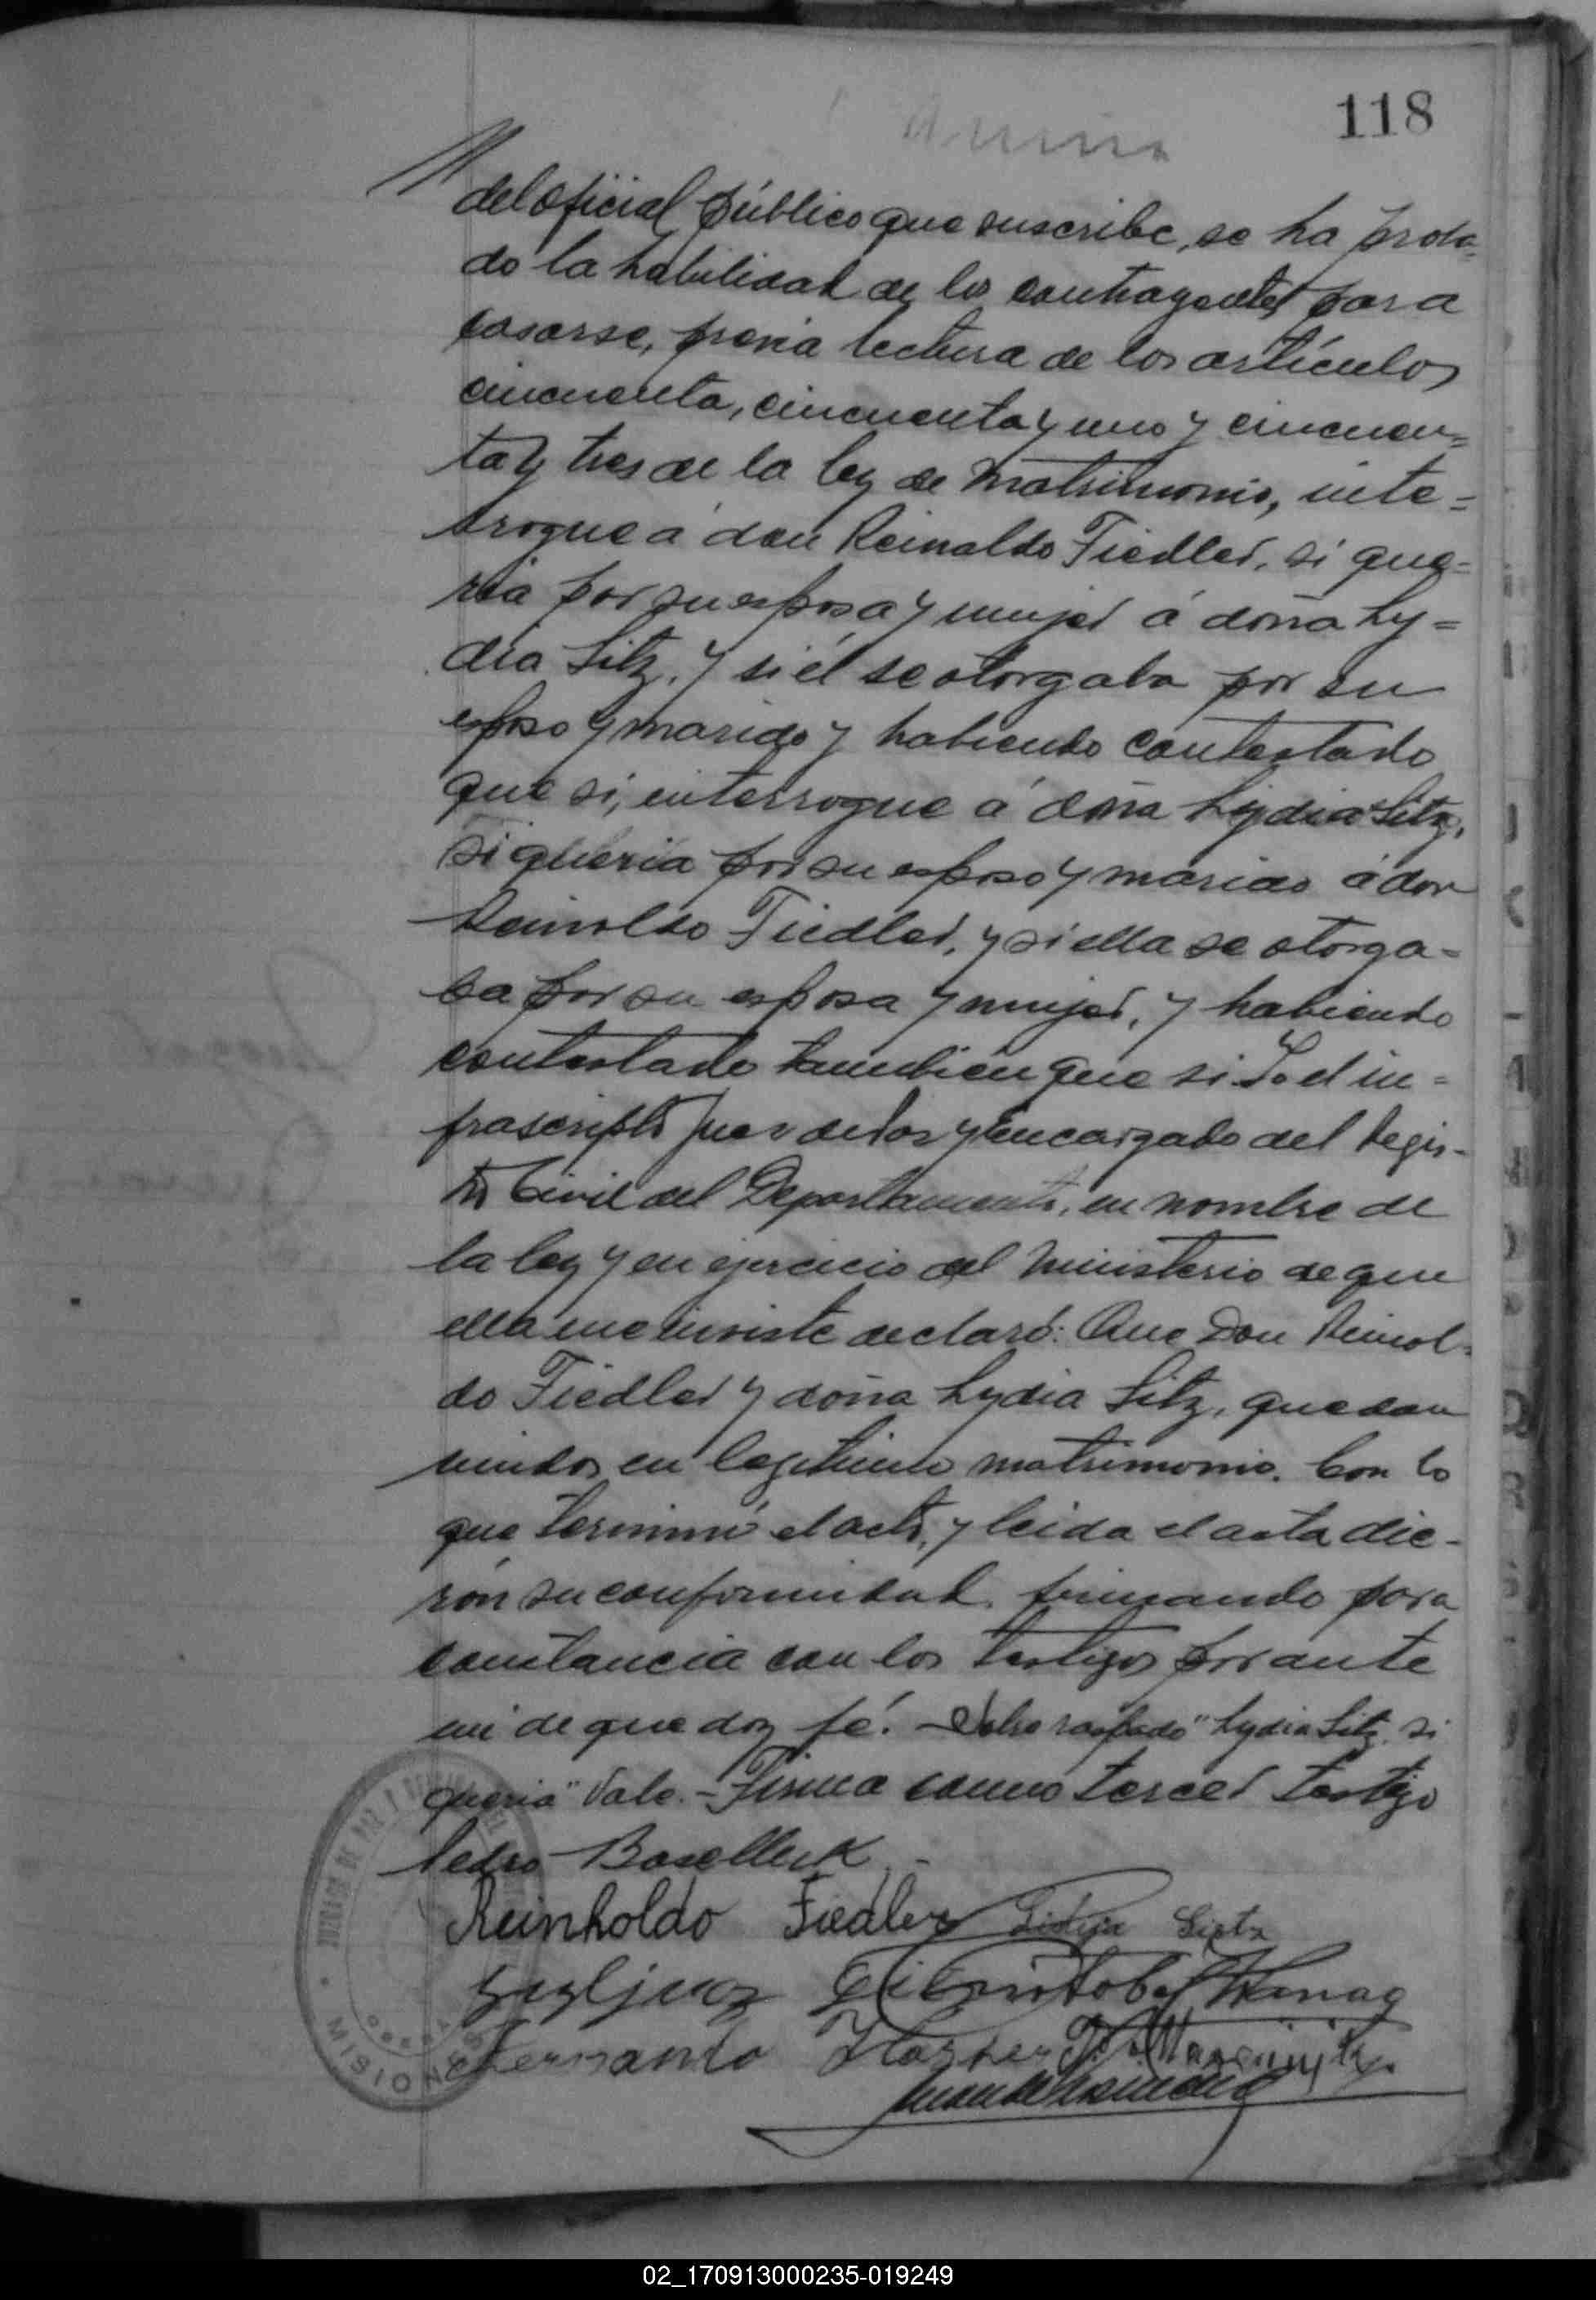 118
del oficial público que suscribe, se ha proba-
do la habilidad de los contrayentes para
casarse, previa lectura de los artículos
cincuenta, cincuenta y uno y cincuen=
ta y tres de la ley de Matrimonio, inte=
rrogue á don Reinoldo Fiedler, si que=
ria por su esposa y mujer á doña Ly=
dia Litz, y si él se otorgaba por su
esposo y marido y habiendo contestado
que si, interrogue á doña Lydia Litz,
si queria por su esposo y marido á don
Reinoldo Fiedler, y si ella se otorga-
ba por su esposa y mujer, y habiendo
contestado tambien que si Yo el in=
frascripto Juez de Paz y Encargado del Regis-
tro Civil del Departamento, en nombre de
la ley y en ejercicio del Ministerio de que
ella me inviste declaro: Que Don Reinol-
do Fiedler y doña Lydia Litz, quedan
unidos en legitimo matrimonio. Con lo
que terminó el acto, y leida el acta die-
ron su conformidad, firmando para
constancia con los testigos por ante
mi de que doy fé. - Sobre raspado "Lydia Litz, si
queria" Vale. - Firma como tercer testigo
Pedro
Reinholdo Fiedler
Fernando
JUZGADO DE PAZ
MISIONES
02_170913000235-019249